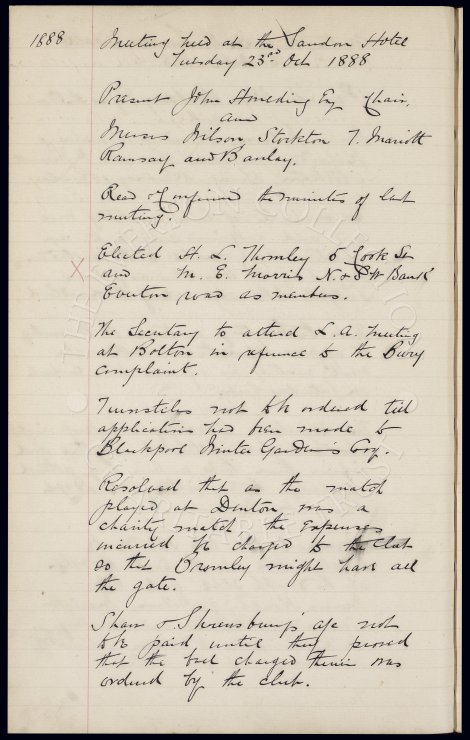 1888
Meeting held at the Sandon Hotel
Tuesday 23rd Oct 1888
Present John Houlding Esq Chair.
and
Messrs Wilson, Stockton T. Mariott
Ramsay and Barclay.
Read & Confirmed the minutes of last
meeting.
Elected H. L. Thornley 5 Cook St
X and M. E. Morris N. & S W Bank
Everton road as members.
The Secretary to attend L. A. meeting
at Bolton in refernce to the Bury
complaint.
Turnstiles not to be ordered till
application had been made to
Blackpool Winter Gardens Coy.
Resolved that as the match
played at Denton was a
charity match, the expenses
incurred be charged to the Club
so that might have all
the gate.
Shaw & Shrewsbury's a/c not
to be paid until they proved
that the ball charged therein was
ordered by the club.
THE EVERTON COLLECTION